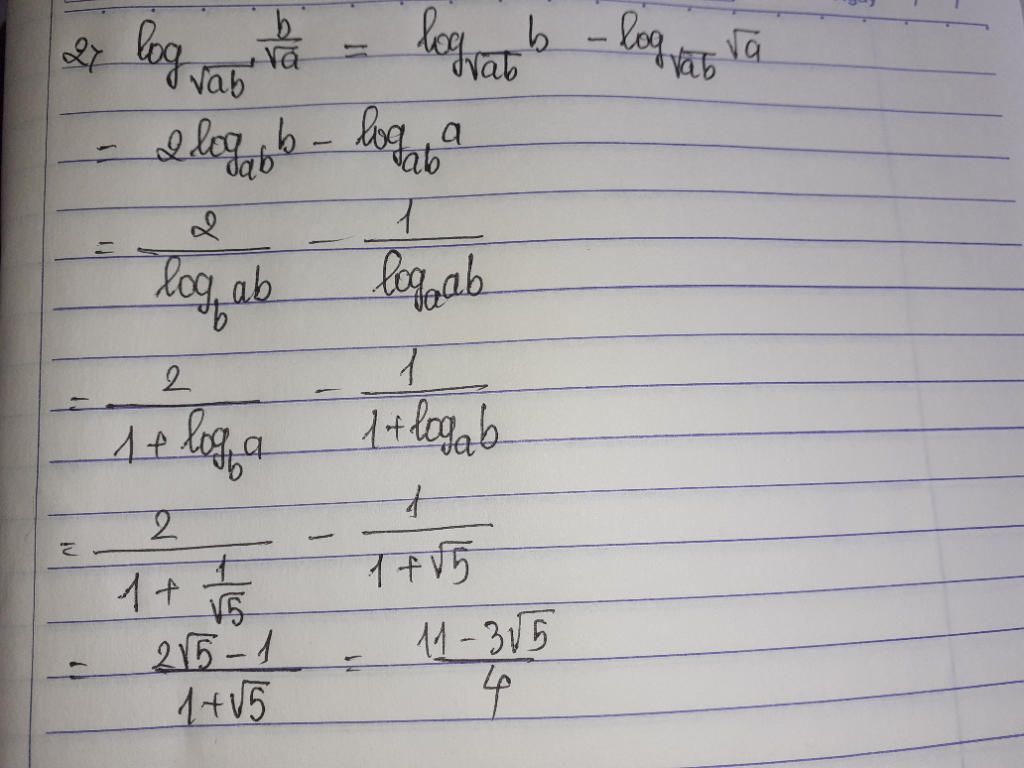 2, log_{√ab} b/√a = log_{√ab} b - log_{√ab} √a
= 2log_{ab} b - log_{ab} a
= 2/(log_b ab) - 1/(log_a ab)
= 2/(1 + log_b a) - 1/(1 + log_a b)
= 2/(1 + 1/√5) - 1/(1 + √5)
= (2√5 - 1)/(1 + √5) = (11 - 3√5)/4